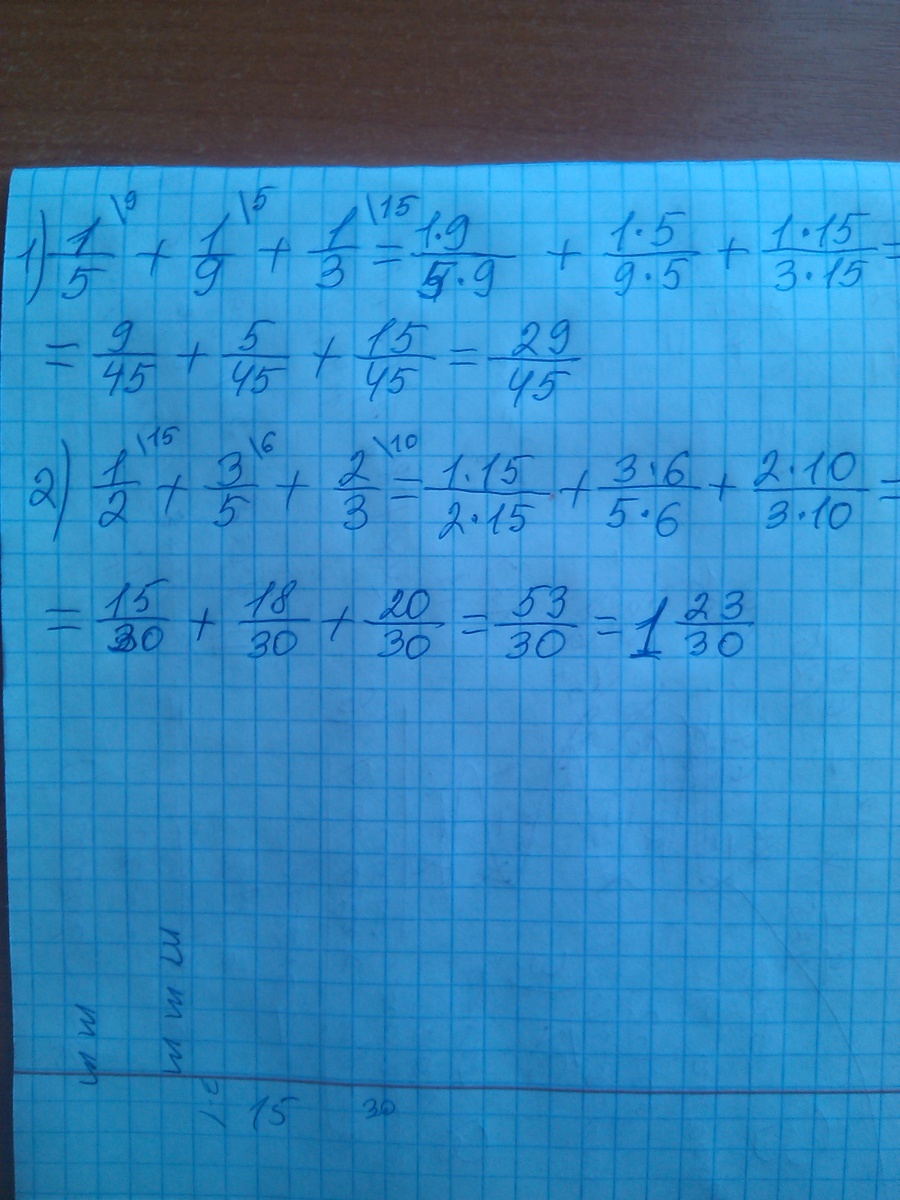 1) 1/5 \9 + 1/9 \5 + 1/3 \15 = 1·9/5·9 + 1·5/9·5 + 1·15/3·15 =
= 9/45 + 5/45 + 15/45 = 29/45
2) 1/2 \15 + 3/5 \6 + 2/3 \10 = 1·15/2·15 + 3·6/5·6 + 2·10/3·10 =
= 15/30 + 18/30 + 20/30 = 53/30 = 1 23/30
15 30